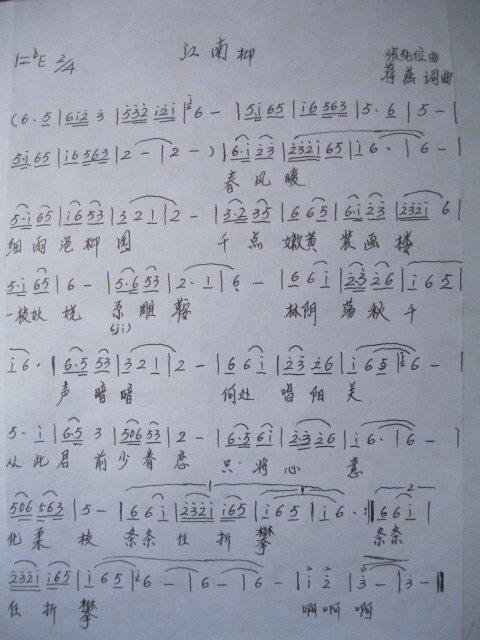 江南柳
1=♭E 2/4
曲
蒋燕 词曲
(6·5|6i2 3|5·32 i2i|6-|5·i 65|i6 563|5·6|5-|
5·i 65|i6 563|2-|2-)|6·i 23|2321 65|i6·|6-|
春风暖
5·i 65|i6 53|321|2-|3·2 35|665|6·i 23|232i 6|
细雨浥柳圆 千点嫩黄装画楼
5·i 65|6-|5·6 53|2·1|6-|66i|2·3 26|i65|
一枝妖娆 系雕鞍 林阴荡秋千
(jì)
i6·|6·5 53|321|2-|66i|23 26|i65|6-|
声暗暗 何处唱阳关
5·i|6·5 3|506 53|2-|6·5 6i|2·3 26|i6·|6-|
从此君前少眷恋 只将心意
506 563|5-|66i|232i i65|i65|i6·:||66i|
化柔枝 条条任折攀 条条
232i i65|i65|6-|6-|6-|i2|3-|3-||
任折攀 啊啊啊